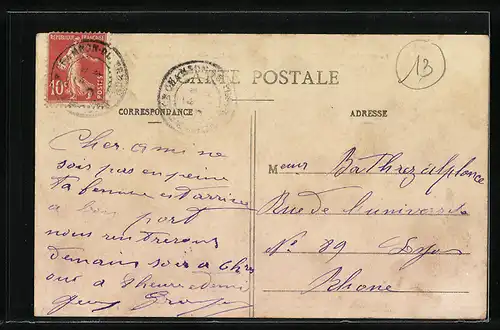 RÉPUBLIQUE FRANÇAISE
10c
POSTES
CARTE POSTALE
13
CORRESPONDANCE
ADRESSE
Cher amine
sois pas en peine
ta femme est arrivée
a bon port
nous rentrerons
demain soir a 6hrs
ou a 8 heure demi
M
Rue de l'université
N° 89 Lyon
Rhone